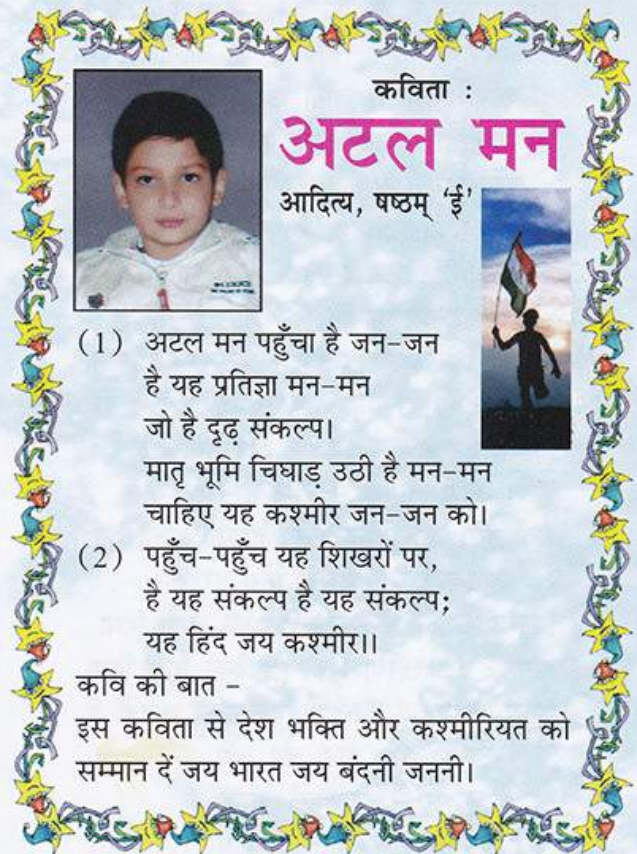 कविता :
अटल मन
आदित्य, षष्ठम् ‘ई’
(1) अटल मन पहुँचा है जन-जन
है यह प्रतिज्ञा मन-मन
जो है दृढ़ संकल्प।
मातृ भूमि चिघाड़ उठी है मन-मन
चाहिए यह कश्मीर जन-जन को।
(2) पहुँच-पहुँच यह शिखरों पर,
है यह संकल्प है यह संकल्प;
यह हिंद जय कश्मीर।।
कवि की बात –
इस कविता से देश भक्ति और कश्मीरियत को
सम्मान दें जय भारत जय बंदनी जननी।